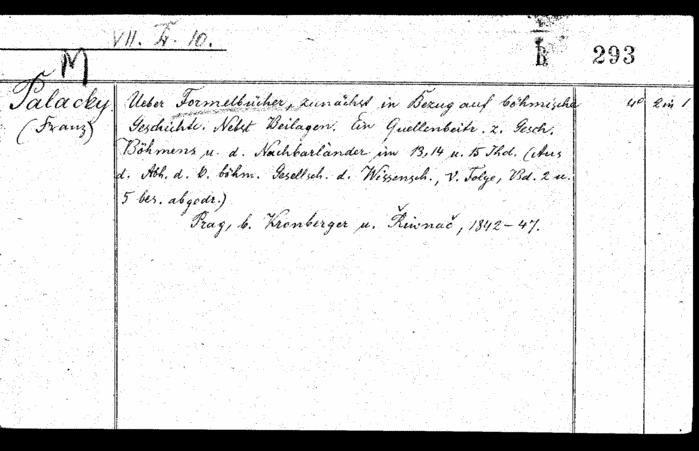 VII. F. 10.
M
293
Palacky
(Franz)
Ueber Formelbücher, zunächst in Bezug auf böhmische
Geschichte. Nebst Beilagen. Ein Quellenbeitr. z. Gesch.
Böhmens u. d. Nachbarländer im 13, 14 u. 15 Jhd. (Aus
d. Abh. d. k. böhm. Gesellsch. d. Wissensch., V. Folge, Bd. 2 u.
5 bes. abgedr.)
Prag, b. Kronberger u. Řiwnač, 1842-47.
4° 2 in 1